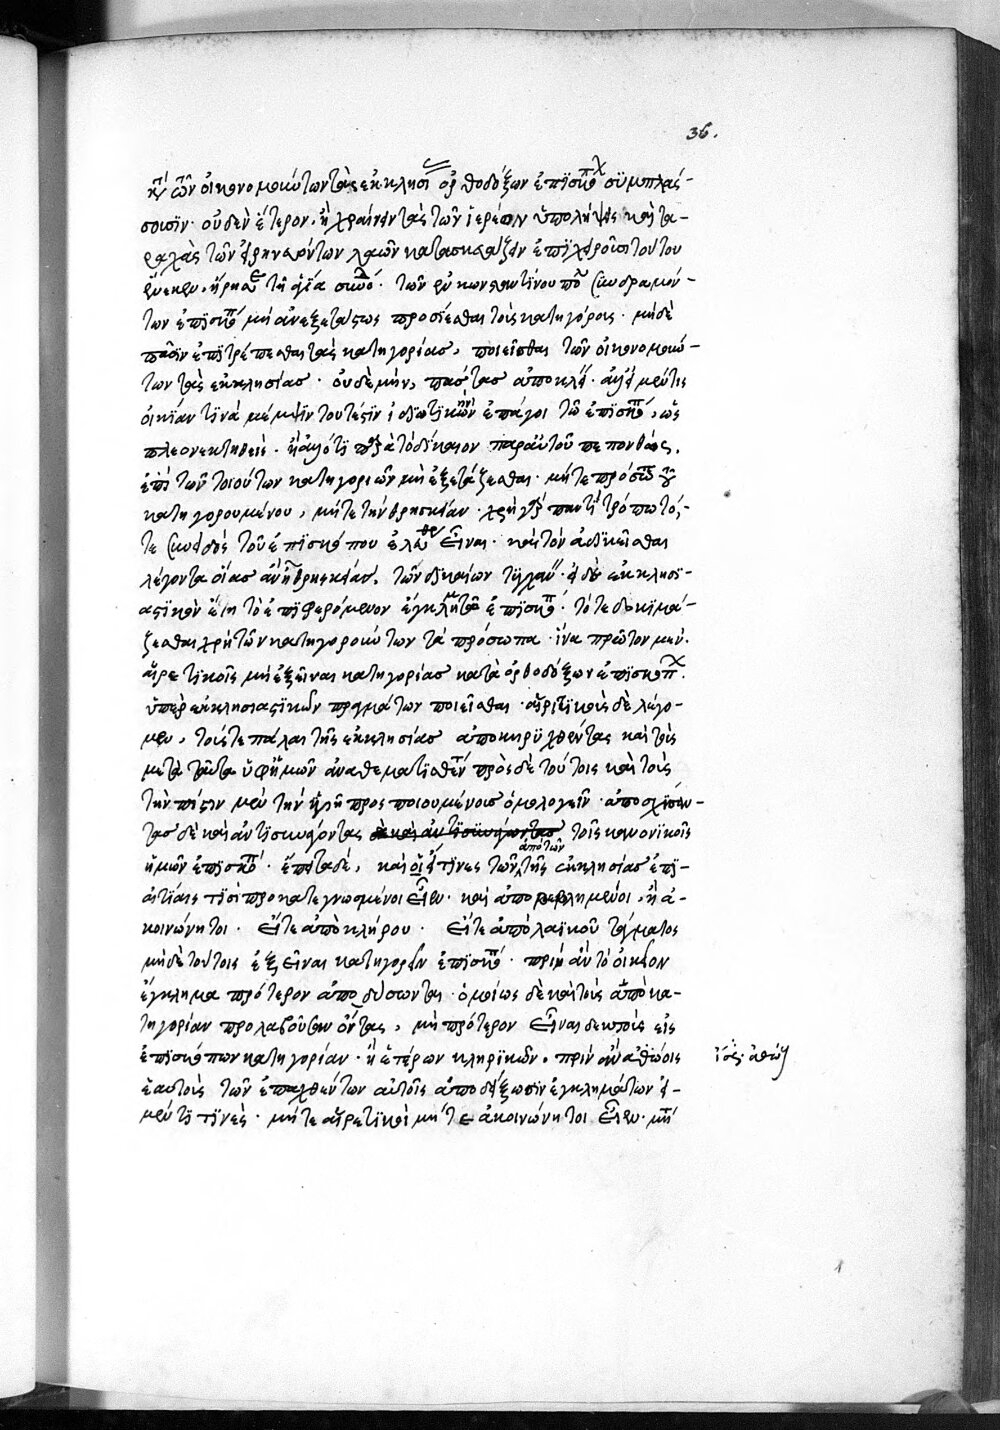 36.
κατὰ τῶν οἰκονομούντων τὰς ἐκκλησί ὀρθοδόξων ἐπισκόπ συμπλάσ-
σουσιν· οὐδὲν ἕτερον, ἢ χραίνειν τὰς τῶν ἱερέων ὑπολήψεις καὶ τα-
ραχὰς τῶν εἰρηνευόντων λαῶν κατασκευάζειν ἐπιχειροῦσι τούτου
ἕνεκεν, ἤρεσε τῇ ἁγίᾳ συνόδ· τῶν ἐν κωνσταντίνου πό συνδραμόν-
των ἐπισκό μὴ ἀνεξετάστως προσίεσθαι τοὺς κατηγόρους· μηδὲ
πᾶσιν ἐπιτρέπεσθαι τὰς κατηγορίας, ποιεῖσθαι τῶν οἰκονομούν-
των τὰς ἐκκλησίας· οὐδὲ μὴν, πάντας ἀποκλεί· ἀλλ' εἰ μέν τις
οἰκείαν τινὰ μέμψιν τουτέστιν ἰδιωτικὴν ἐπάγοι τῷ ἐπισκό, ὡς
πλεονεκτηθεὶς· ἢ ἄλλό τι παρὰ τὸ δίκαιον παρ' αὐτοῦ πεπονθώς,
ἐπὶ τῶν τοιούτων κατηγοριῶν μὴ ἐξετάζεσθαι· μήτε πρόσωπον τοῦ
κατηγορουμένου, μήτε τὴν θρησκείαν· χρὴ γὰρ παντὶ τρόπῳ τό,-
τε συνειδὸς τοῦ ἐπισκόπου ἐλεύθερ εἶναι· καὶ τὸν ἀδικεῖσθαι
λέγοντα οἵας ἂν ᾖ θρησκείας, τῶν δικαίων τυγχάν· εἰ δὲ ἐκκλησι-
αστικὸν εἴη τὸ ἐπιφερόμενον ἔγκλημα τῷ ἐπισκό· τότε δοκιμά-
ζεσθαι χρὴ τῶν κατηγορούντων τὰ πρόσωπα· ἵνα πρῶτον μὲν.
αἱρετικοῖς μὴ ἐξεῖναι κατηγορίας κατὰ ὀρθοδόξων ἐπισκόπ.
ὑπὲρ ἐκκλησιαστικῶν πραγμάτων ποιεῖσθαι· αἱρετικοὺς δὲ λέγο-
μεν, τούς τε πάλαι τῆς ἐκκλησίας ἀποκηρυχθέντας καὶ τοὺς
μετὰ ταῦτα ὑφ' ἡμῶν ἀναθεματισθέν πρὸς δὲ τούτοις καὶ τοὺς
τὴν πίστιν μὲν τὴν ὑγιῆ προσποιουμένους ὁμολογεῖν· ἀποσχίσαν-
τας δὲ καὶ ἀντισυνάγοντας δὲ καὶ ἀντισυνάγοντας τοῖς κανονικοῖς
ἡμῶν ἐπισκό· ἔπειτα δὲ, καὶ οἵ εἴ τινες τῶν ἀπὸ τῶν τῆς ἐκκλησίας ἐπὶ-
αἰτίαις τισὶ προκατεγνωσμένοι εἶεν· καὶ ἀποβεβλημένοι, ἢ ἀ-
κοινώνητοι· εἴτε ἀπὸ κλήρου· εἴτε ἀπὸ λαϊκοῦ τάγματος
μηδὲ τούτοις ἐξεῖναι κατηγορεῖν ἐπισκό· πρὶν ἂν τὸ οἰκεῖον
ἔγκλημα πρότερον ἀποδύσωνται· ὁμοίως δὲ καὶ τοὺς ἀπὸ κα-
τηγορίαν προλαβοῦσαν ὄντας, μὴ πρότερον εἶναι δεκτοὺς εἰς
ἐπισκόπων κατηγορίαν· ἢ ἑτέρων κληρικῶν, πρὶν ἂν ἀθώους
ἑαυτοὺς τῶν ἐπαχθέντων αὐτοῖς ἀποδείξωσιν ἐγκλημάτων εἰ-
μέν τι τινὲς· μήτε αἱρετικοὶ μήτε ἀκοινώνητοι εἶεν· μή